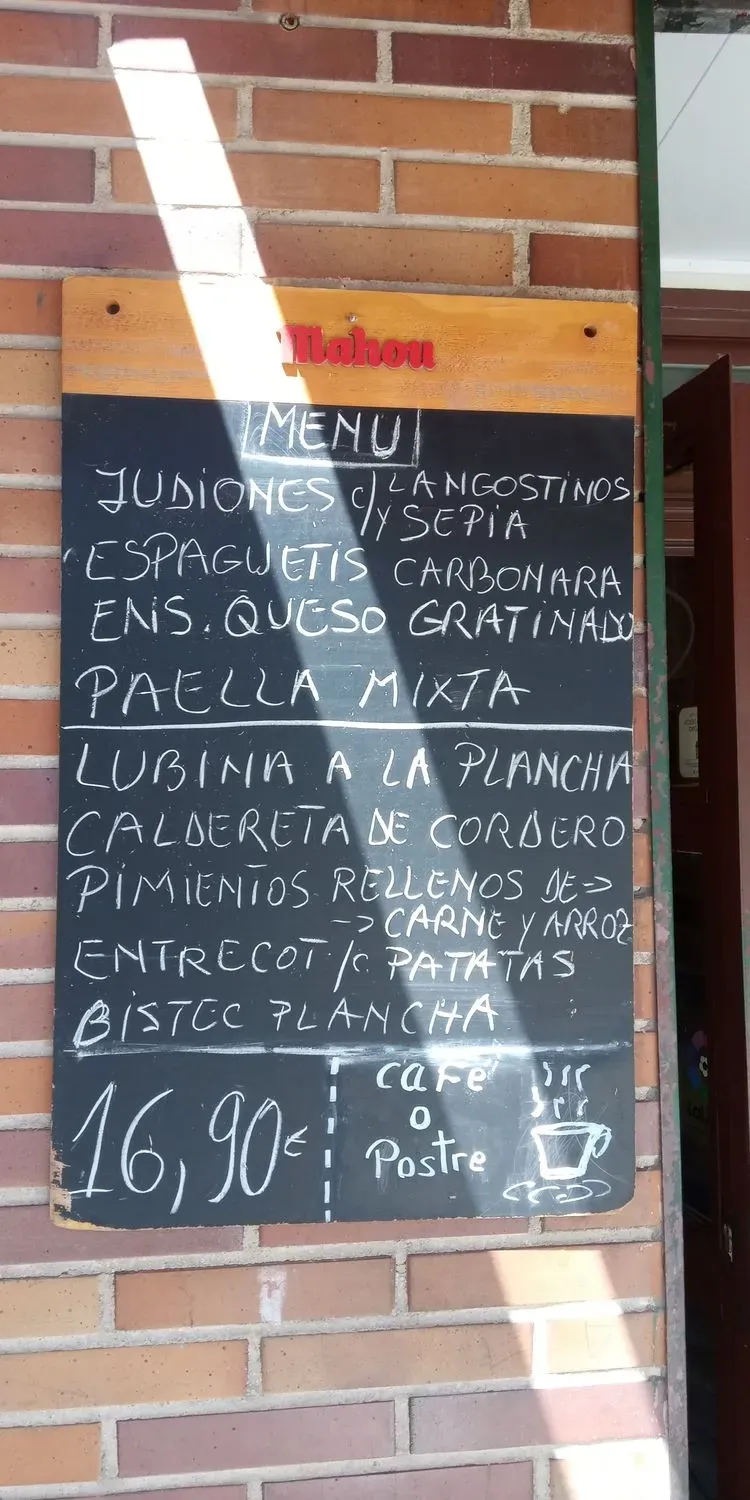 Mahou
MENU
JUDIONES c/LANGOSTINOS
Y SEPIA
ESPAGUETIS CARBONARA
ENS. QUESO GRATINADO
PAELLA MIXTA
LUBINA A LA PLANCHA
CALDERETA DE CORDERO
PIMIENTOS RELLENOS DE =>
-> CARNE Y ARROZ
ENTRECOT /c PATATAS
BISTEC PLANCHA
16,90€
café
o
Postre